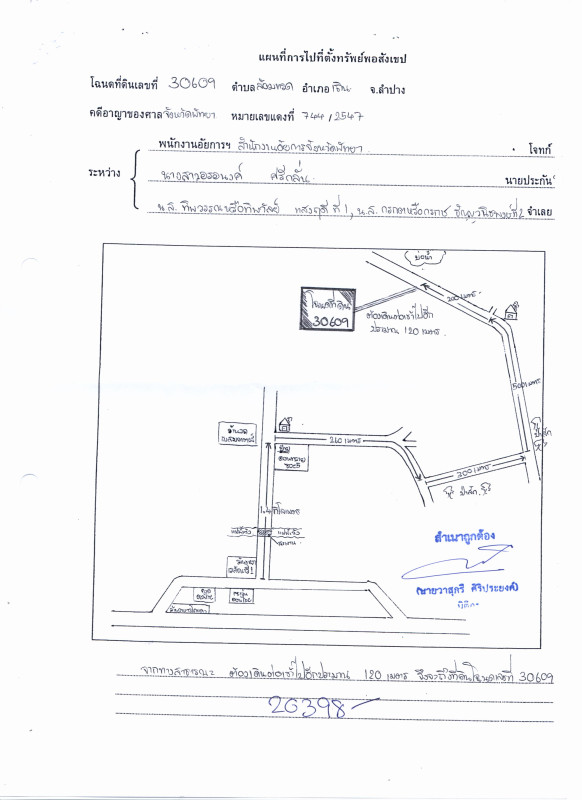 แผนที่การไปที่ตั้งทรัพย์พอสังเขป
โฉนดที่ดินเลขที่ 30609 ตำบลล้อมแรด อำเภอเถิน จ.ลำปาง
คดีอาญาของศาลจังหวัดพัทยา หมายเลขแดงที่ 744/2547
พนักงานอัยการฯ สำนักงานอัยการจังหวัดพัทยา โจทก์
ระหว่าง
นางสาวอรอนงค์ ศรีกลั่น นายประกัน
น.ส. ทิพวรรณหรือทิพวัลย์ ที่ 1, น.ส. ที่ 2 จำเลย
บ่อน้ำ
200 เมตร
โฉนดที่ดิน
30609
ต้องเดินต่อเข้าไปอีก
ประมาณ 120 เมตร
500 เมตร
260 เมตร
200 เมตร
ป่าสัก
ป่าสัก
1.4 กิโลเมตร
สะพาน
สำเนาถูกต้อง
(นายวาสุกรี ศิริประยงค์)
นิติกร
จากทางสาธารณะ ต้องเดินต่อเข้าไปอีกประมาณ 120 เมตร จึงจะถึงที่ดินโฉนดเลขที่ 30609
26398